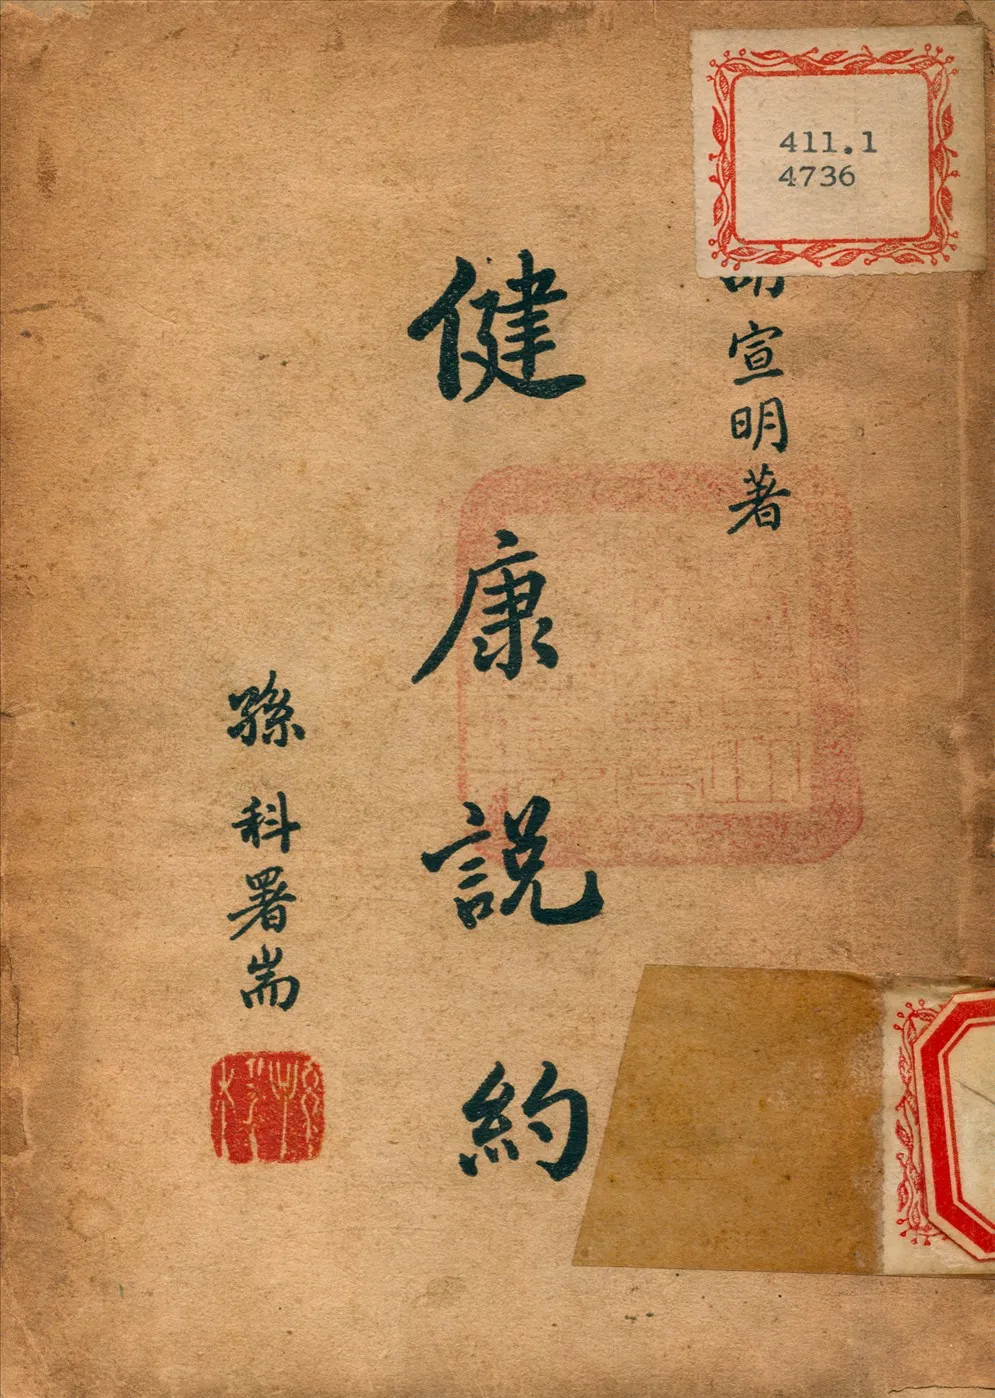 411.1
4736
宣明著
健康說約
孫科署耑